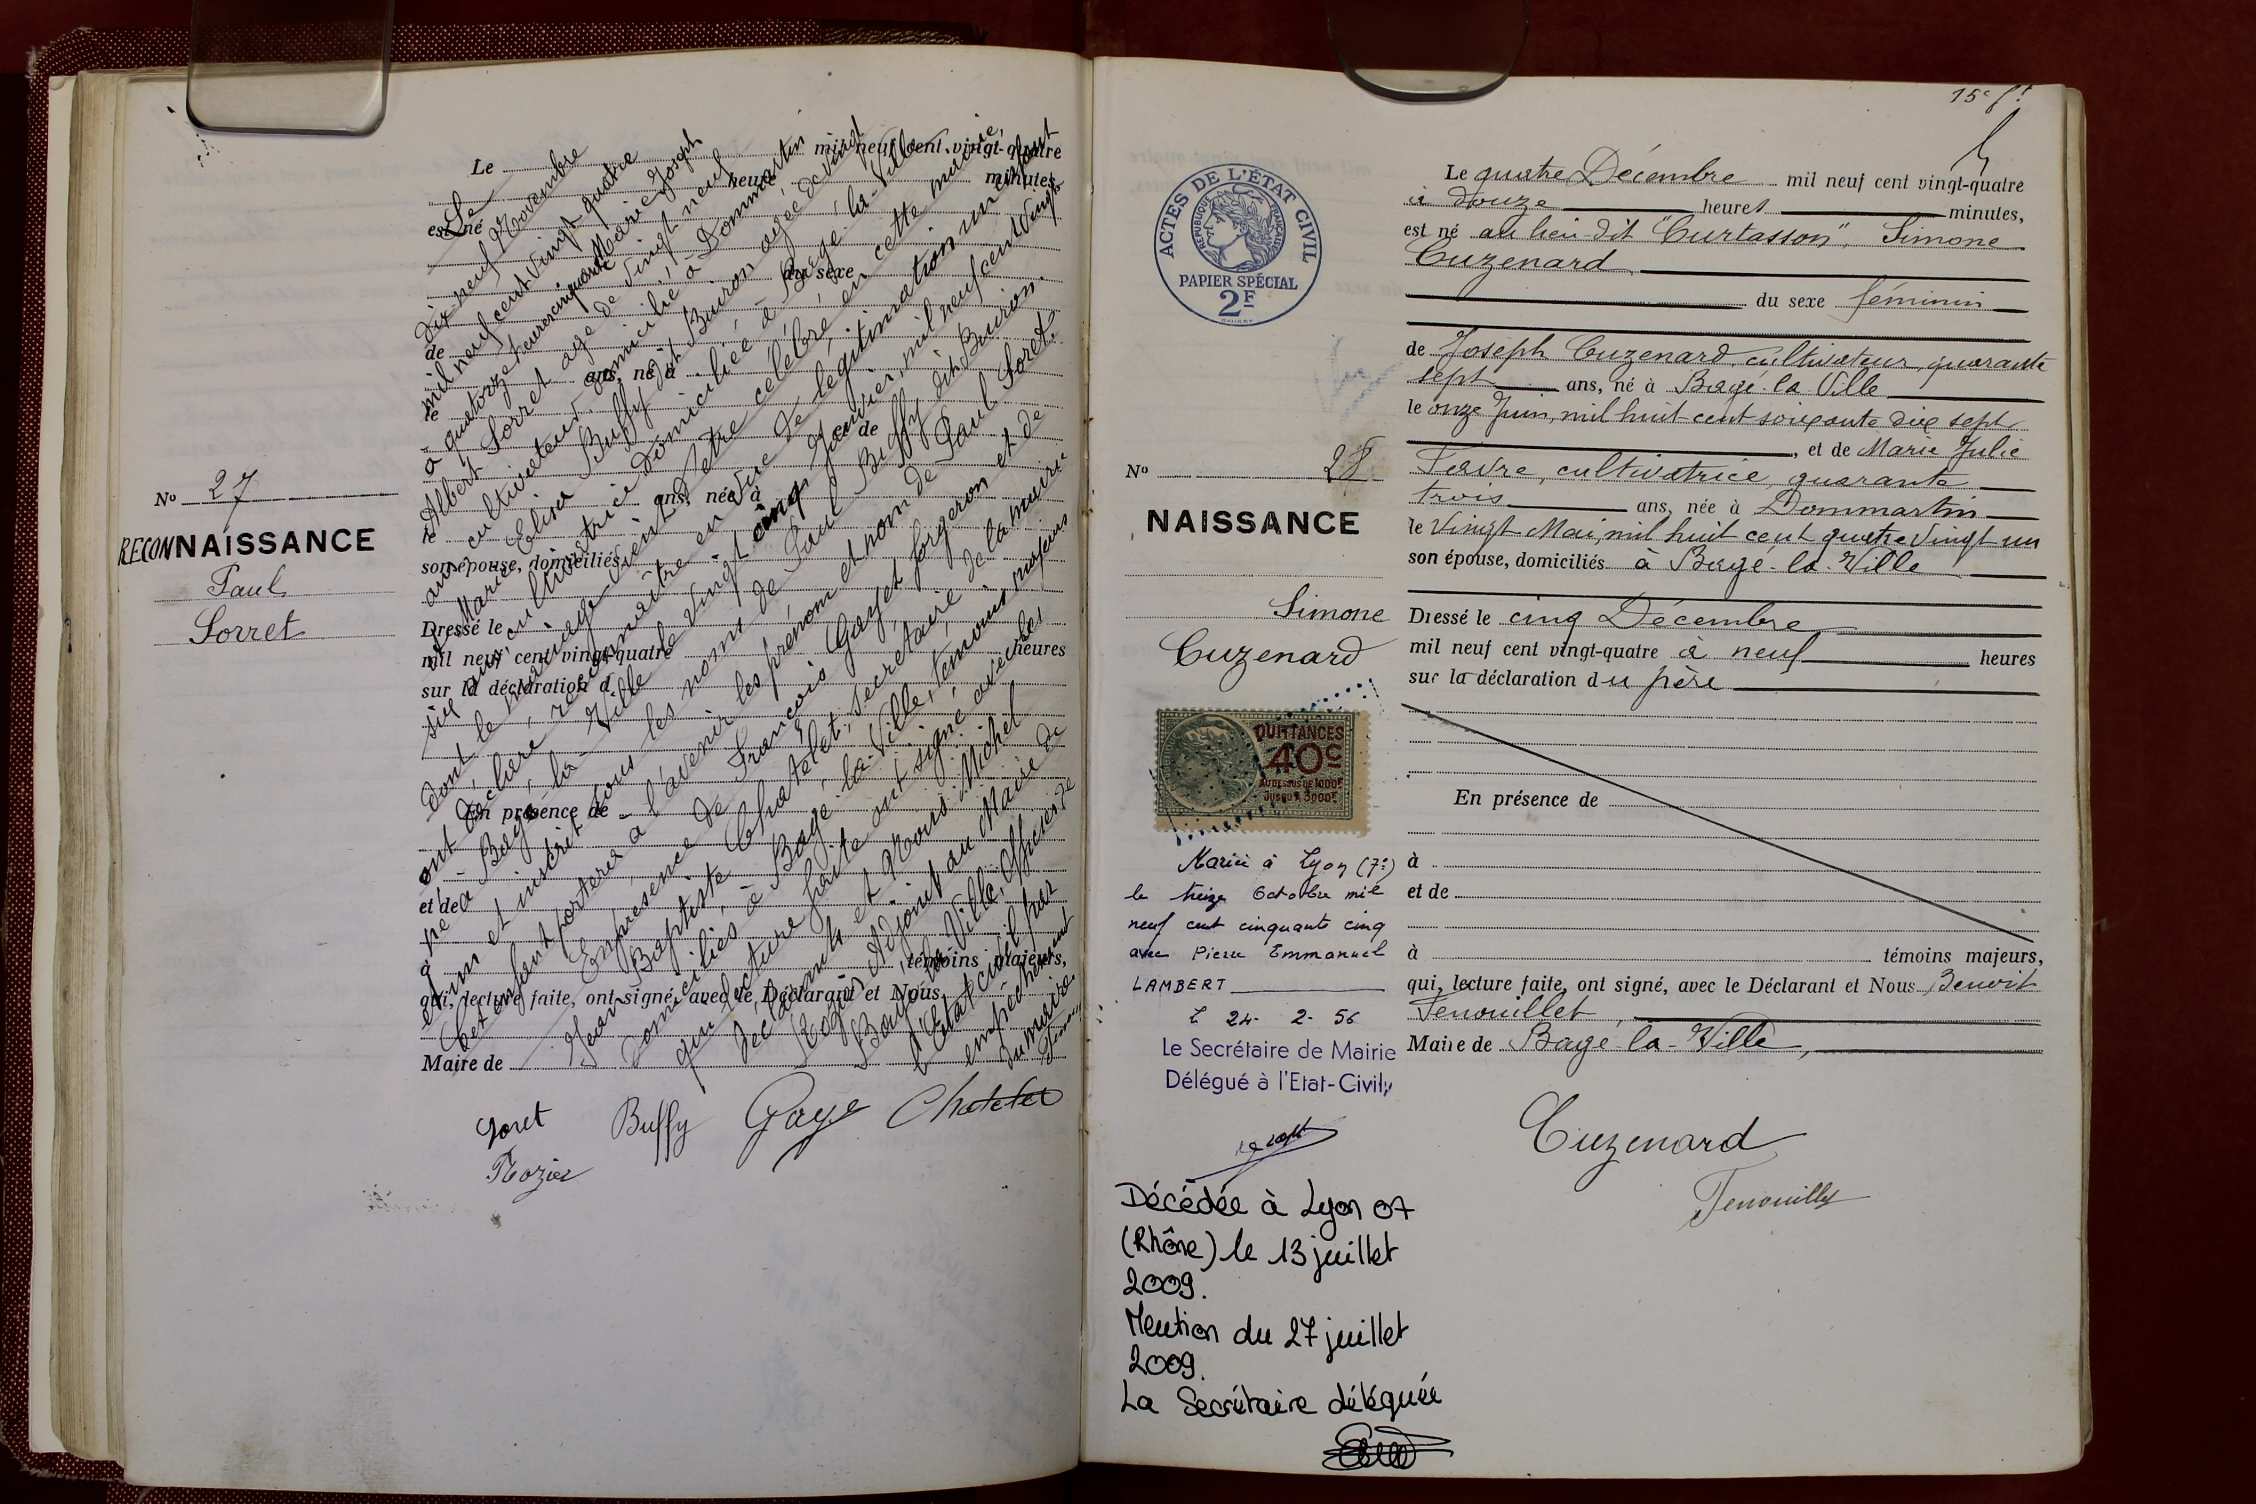 Le mil neuf cent vingt-quatre
heures minutes,
est né
du sexe
de
ans, né à
le
et de
ans, née à
le
son épouse, domiciliés
Dressé le
mil neuf cent vingt-quatre heures
sur la déclaration d
En présence de
et de
à témoins majeurs,
qui, lecture faite, ont signé, avec le Déclarant et Nous
Maire de
Le
dix neuf Novembre
mil neuf cent vingt quatre
à quatorze heures cinquante Marie Joseph
Albert Sorret âgé de vingt neuf
ans, cultivateur, domicilié à Dommartin
et Marie Elisa Buffy dit Buiron âgée de vingt
six ans, cultivatrice domiciliée à Bagé-la-Ville
dont le mariage vient d'être célébré en cette mairie,
ont déclaré reconnaître en vue de légitimation un enfant
né à Bagé-la-Ville le vingt cinq Janvier mil neuf cent vingt
et un et inscrit sous les noms de Paul Buffy dit Buiron.
Cet enfant portera à l'avenir les prénom et nom de Paul Sorret.
En présence de François Gayet forgeron et de
Jean Baptiste Chatelet, secrétaire de la mairie
domiciliés à Bagé-la-Ville, témoins majeurs
qui, lecture faite ont signé avec les
déclarants et Nous Michel
Rozier Adjoint au Maire de
Bagé-la-Ville, Officier de
l'Etat civil par
empêchement
du maire
Soret Buffy Gaye Chatelet
Rozier
No 27
RECONNAISSANCE
Paul
Sorret
15e ft
ACTES DE L'ÉTAT CIVIL
RÉPUBLIQUE FRANÇAISE
PAPIER SPÉCIAL
2F
No 28
NAISSANCE
Simone
Cuzenard
QUITTANCES
40c
AU DESSUS DE 1000F
JUSQU'À 3000F
Mariée à Lyon (7e)
le treize Octobre mil
neuf cent cinquante cinq
avec Pierre Emmanuel
LAMBERT
L 24- 2- 56
Le Secrétaire de Mairie
Délégué à l'Etat-Civil,
Décédée à Lyon 07
(Rhône) le 13 juillet
2009.
Mention du 27 juillet
2009.
La Secrétaire déléguée
Le quatre Décembre mil neuf cent vingt-quatre
à douze heures minutes,
est né au lieu-dit "Curtasson", Simone
Cuzenard
du sexe féminin
de Joseph Cuzenard, cultivateur, quarante
sept ans, né à Bagé-la-Ville
le onze Juin, mil huit cent soixante dix sept
, et de Marie Julie
Favre, cultivatrice, quarante
trois ans, née à Dommartin
le vingt Mai, mil huit cent quatre vingt un
son épouse, domiciliés à Bagé-la-Ville
Dressé le cinq Décembre
mil neuf cent vingt-quatre à neuf heures
sur la déclaration du père
En présence de
à
et de
à témoins majeurs,
qui, lecture faite, ont signé, avec le Déclarant et Nous Benoit
Fenouillet,
Maire de Bagé-la-Ville,
Cuzenard